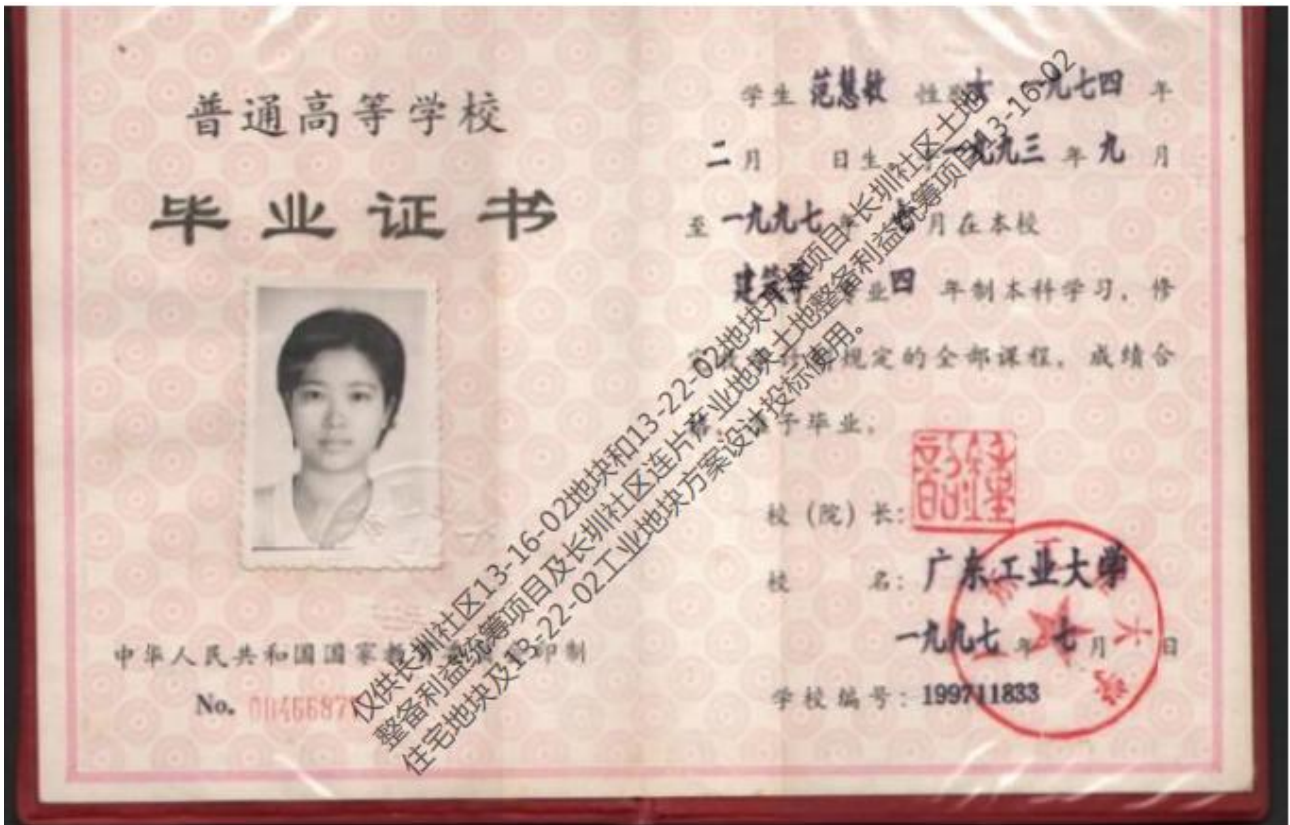 普通高等学校
毕业证书
中华人民共和国国家教 印制
No.
学生 范慧敏 性别 女 一九七四 年
二月 日生 一九九三 年 九 月
至 一九九七 年 七 月在本校
建筑学 专业 四 年制本科学习，修
规定的全部课程，成绩合
格，准予毕业。
校（院）长：
校 名：广东工业大学
一九九七 年 七 月 日
学校编号：199711833
仅供长圳社区13-16-02地块和13-22-02地块 项目-长圳社区土地
整备利益统筹项目及长圳社区连片产业地块土地整备利益统筹项目13-16-02
住宅地块及13-22-02工业地块方案设计投标使用。